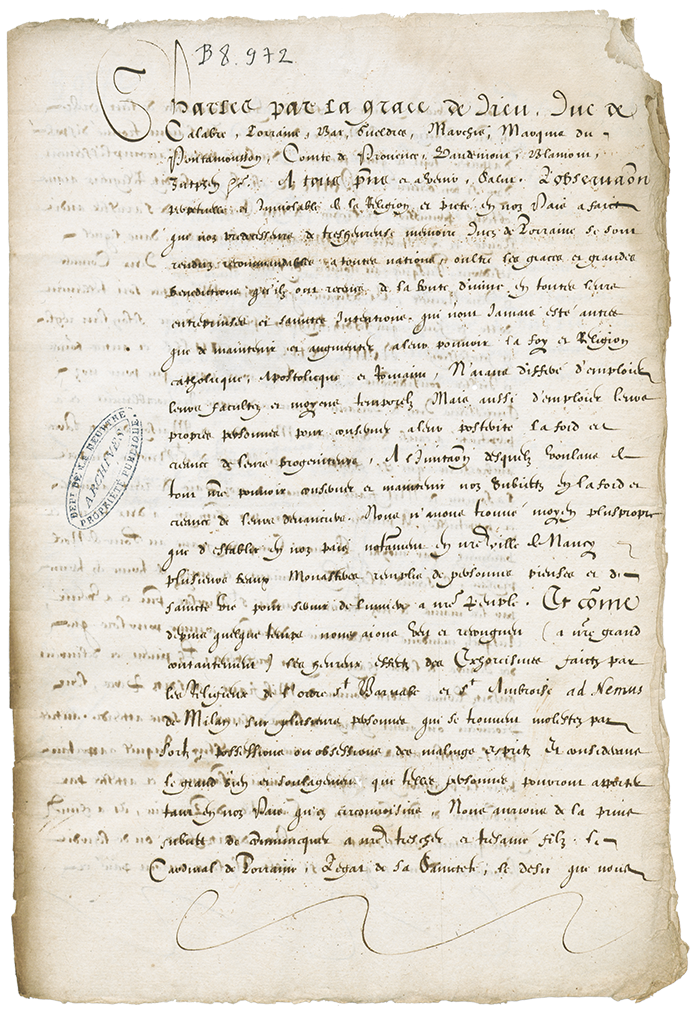 B 8.972
Charles par la grace de Dieu, Duc de
Calabre, Lorraine, Bar, Gueldres, Marchis, Marquis du
Pontamousson, Comte de Provence, Vaudemont, Blamont,
Zutphen &c. A tous pñs et advenir, Salut. L'observaõn
perpetuelle et Inviolable de la Religion et pieté en noz Païs a faict
que noz predecesseurs de tresheureuse memoire Ducz de Lorraine se sont
renduz recommandables a toutes nations, oultre les graces et grandes
benedictions qu'ilz ont receus de la bonté divine en toutes leurs
entreprinses et sainctes Intentions, qui n'ont Jamais esté autres
que de maintenir et augmenter a leur pouvoir la foy et Religion
catholicque, Apostolicque et Romaine, N'aians differé d'emploier
leurs facultez et moyens temporelz Mais aussi d'emploier leurs
propres personnes pour conserver a leur posterité la foid et
creance de leurs progeniteurs, A l'Imitaõn desquelz voulans de
tout nr̃e pouvoir conserver et maintenir noz Subiectz en la foid et
creance de leurs devanciers, Nous n'avons trouvé moyen pluspropre
que d'establir en noz païs notamment en nr̃e Ville de Nancy
plusieurs beaux Monasteres remplis de personnes pieuses et de
saincte vie pour servir de lumiere a nr̃e peuple. Et cõme
depuis quelque temps nous aions veu et recongneu (a nr̃e grand
contantement) les heureux effectz des Exhorcismes faictz par
les Religieux de l'ordre St Barnabé et St Ambroise ad Nemus
de Milan, sur plusieurs personnes qui se trouvent molestez par
sort, possessions ou obsessions des malings espritz Et considerans
le grand bien et soulagement que telles personnes pouvront apporter
tant en noz Païs qu'es circonvoisins, Nous aurions de la prins
subiect de cõmunicquer a nr̃e trescher et tresamé filz le
Cardinal de Lorraine, Legat de sa Saincteté, le desir que nous
DEPT DE LA MEURTHE
ARCHIVES
PROPRIÉTÉ PUBLIQUE